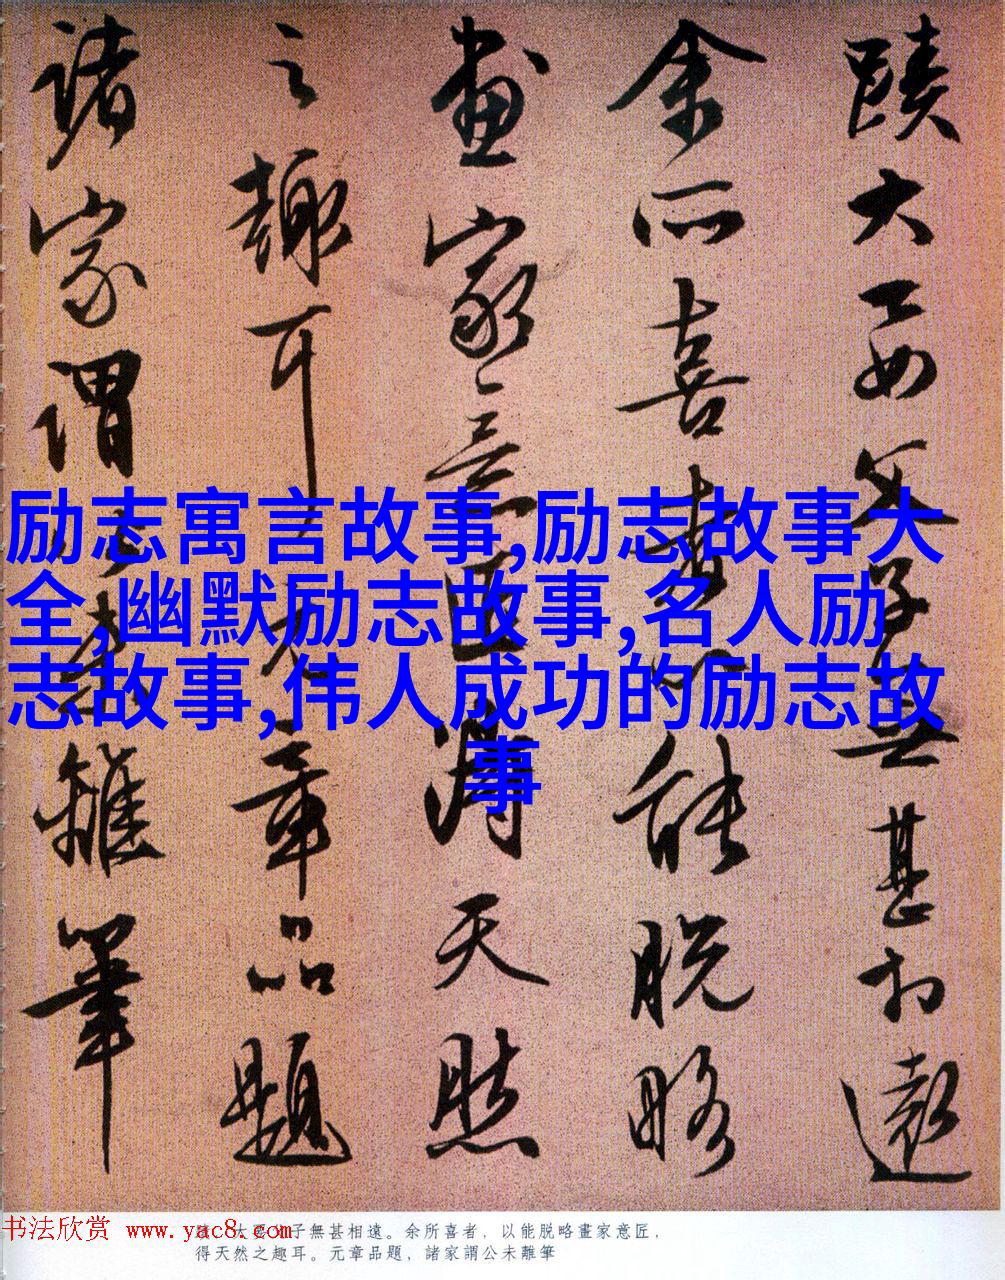 蹟大要父子無甚相遠
余所喜者以能脱略
畫家意匠得天然
之趣耳元章品題
諸家謂公未離筆
励志寓言故事,励志故事大
全,幽默励志故事,名人励
志故事,伟人成功的励志故
事
书法欣赏 www.yac8.com
大要父子無甚相遠。余所喜者，以能脱略畫家意匠，
得天然之趣耳。元章品題，諸家謂公未離筆